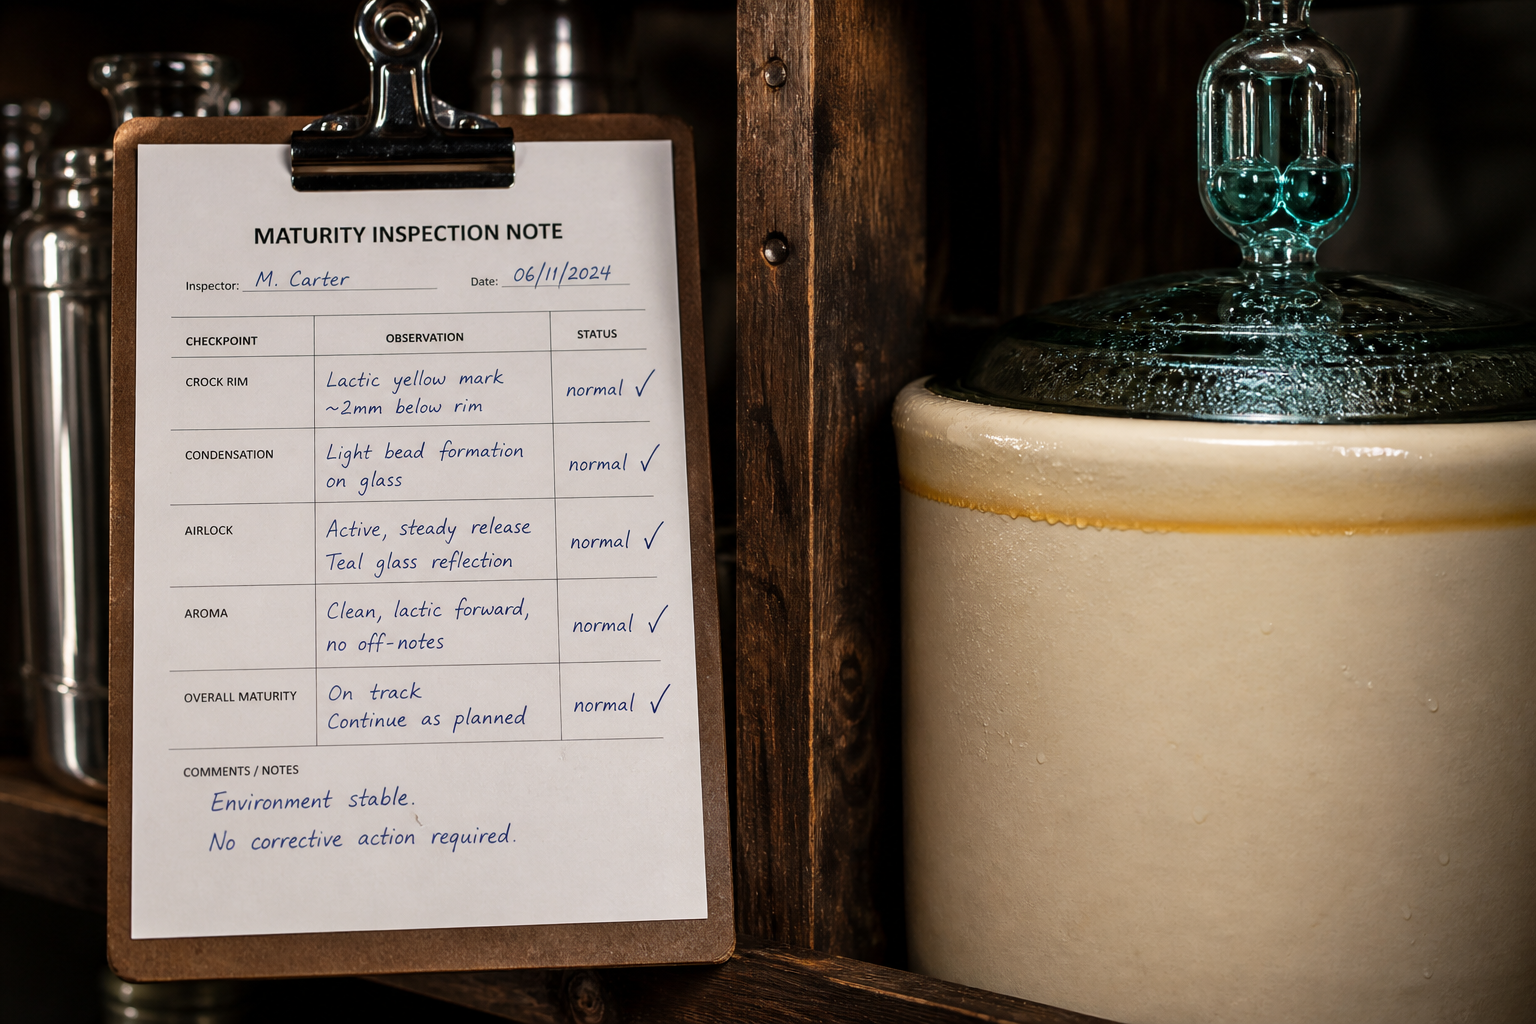 MATURITY INSPECTION NOTE
Inspector: M. Carter Date: 06/11/2024
CHECKPOINT OBSERVATION STATUS
CROCK RIM Lactic yellow mark normal ✓
~2mm below rim
CONDENSATION Light bead formation normal ✓
on glass
AIRLOCK Active, steady release normal ✓
Teal glass reflection
AROMA Clean, lactic forward, normal ✓
no off-notes
OVERALL MATURITY On track normal ✓
Continue as planned
COMMENTS / NOTES
Environment stable.
No corrective action required.